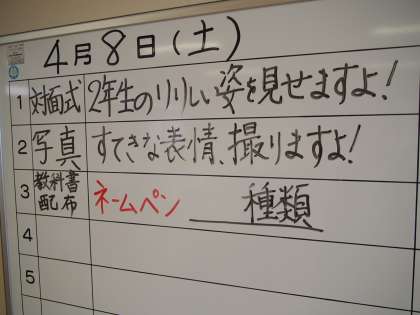 4月8日(土)
1 対面式 2年生のりりしい姿を見せますよ!
2 写真 すてきな表情、撮りますよ!
3 教科書配布 ネームペン 種類
4
5